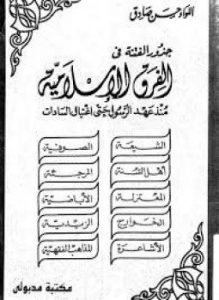 اللواء حسن صادق
جذور الفتنة فى
الفرق الإسلامية
منذ عهد الرسول حتى اغتيال السادات
الشيعة
الصوفية
أهل السنة
المرجئة
المعتزلة
الأباضية
الخوارج
الزيدية
الأشاعرة
المذاهب الفقهية
مكتبة مدبولى